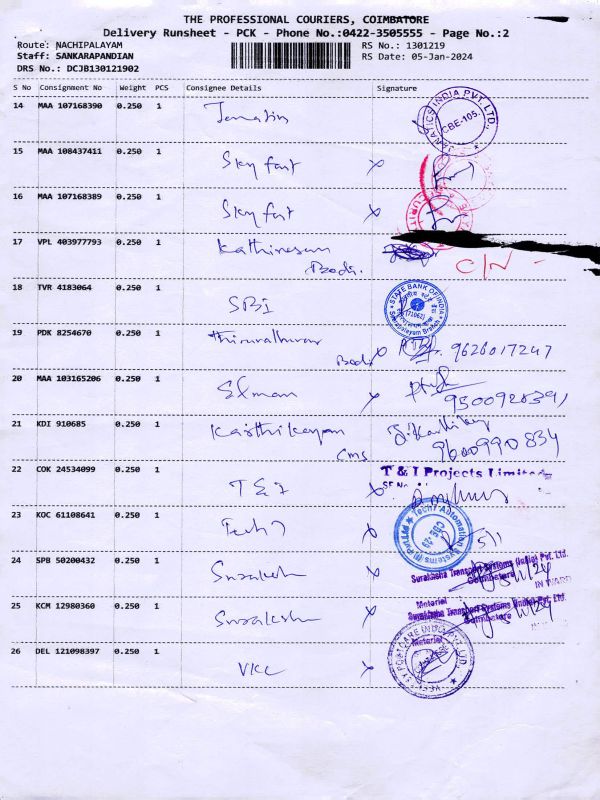 THE PROFESSIONAL COURIERS, COIMBATORE
Delivery Runsheet - PCK - Phone No.:0422-3505555 - Page No.:2
Route: NACHIPALAYAM
RS No.: 1301219
Staff: SANKARAPANDIAN
RS Date: 05-Jan-2024
DRS No.: DCJB130121902
S No Consignment No Weight PCS Consignee Details Signature
14 MAA 107168390 0.250 1
JANATICS INDIA PVT. LTD., CBE-105.
15 MAA 108437411 0.250 1 Sky fart x
16 MAA 107168389 0.250 1 Sky fart x
17 VPL 403977793 0.250 1 Kathiresan
Bodi. C/N -
18 TVR 4183064 0.250 1 SBI
STATE BANK OF INDIA
(71062)
19 PDK 8254670 0.250 1 Thiruvalluvar
Bodi x 9626017247
20 MAA 103165206 0.250 1 x
9500928391
21 KDI 910685 1 0.250 Karthikeyan
cms 9600990834
22 COK 24534099 0.250 1 T & I x
T & I Projects Limited
SF No
23 KOC 61108641 0.250 1 Tech 7 x
Tech7 Automation Systems (I) Pvt Ltd
24 SPB 50200432 0.250 1 Suraksha x
Suraksha Transport Systems (India) Pvt. Ltd.
Coimbatore
INWARD
25 KCM 12980360 0.250 1 Suraksha x
Material
Suraksha Transport Systems (India) Pvt. Ltd.
Coimbatore
Material
26 DEL 121098397 0.250 1 VKC x